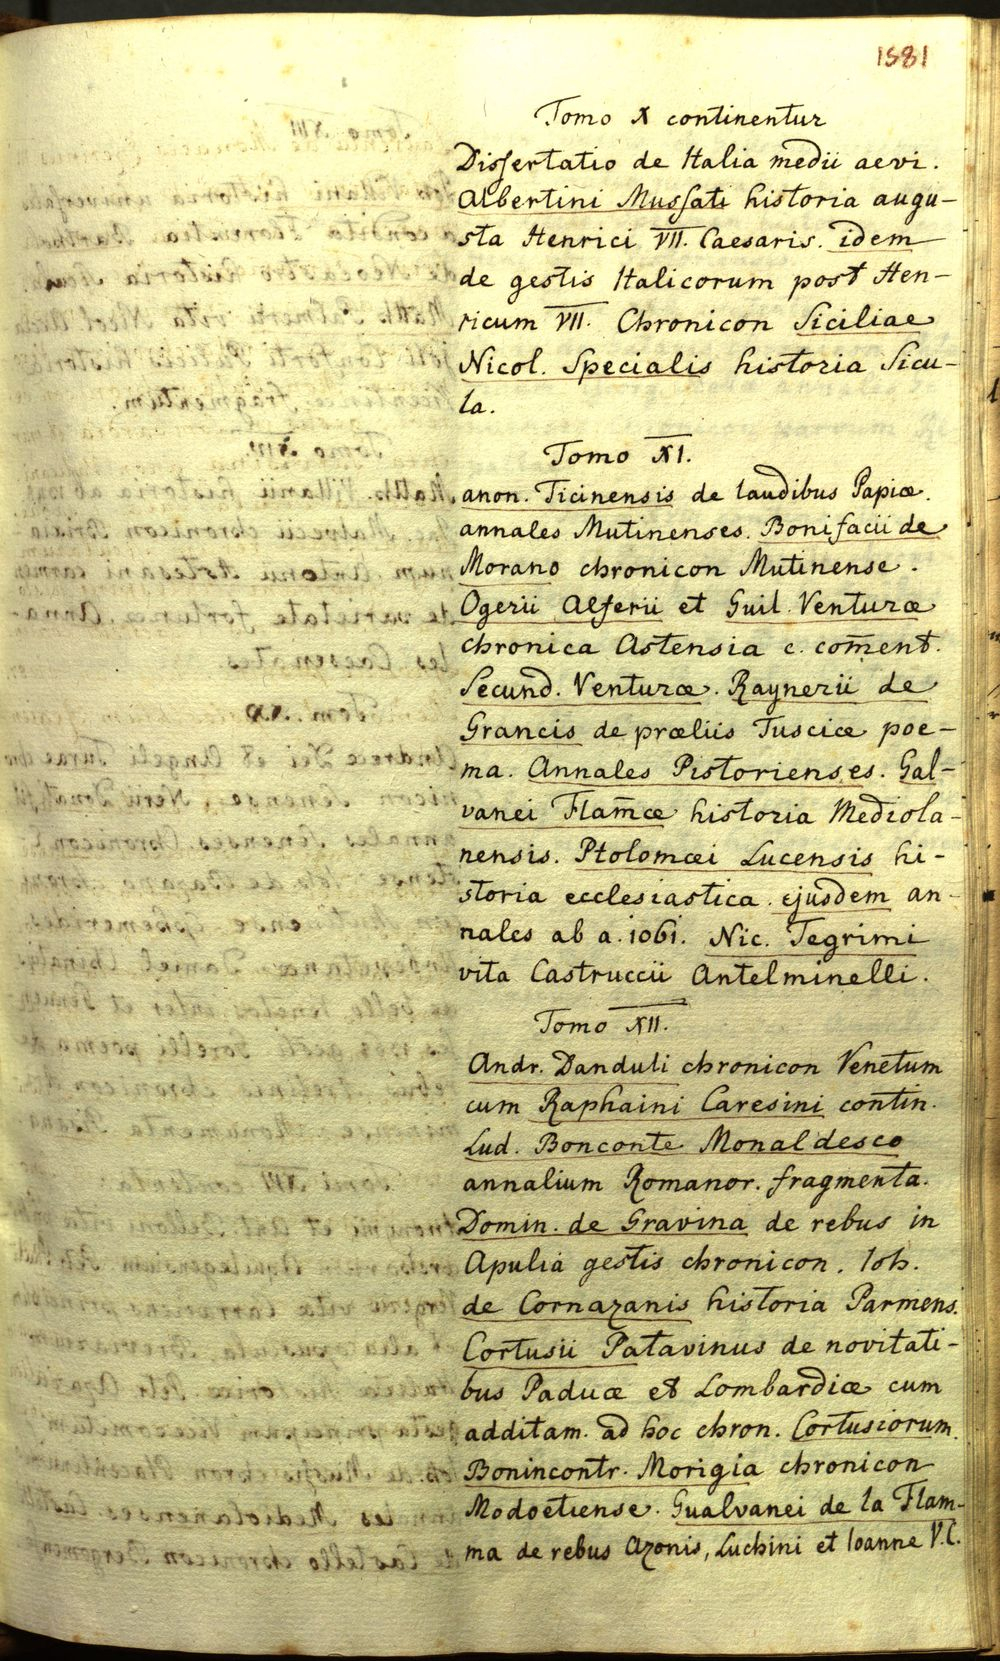 1581
Tomo X continentur
Dissertatio de Italia medii aevi.
Albertini Mussati historia augu-
sta Henrici VII. Caesaris. idem
de gestis Italicorum post Hen-
ricum VII. Chronicon Siciliae
Nicol. Specialis historia Sicu-
la.
Tomo XI.
anon. Ticinensis de laudibus Papiæ.
annales Mutinenses. Bonifacii de
Morano chronicon Mutinense.
Ogerii Alferii et Guil. Venturæ
chronica Astensia c. com̅ent.
Secund. Venturæ. Raynerii de
Grancis de præliis Tusciæ poe-
ma. Annales Pistorienses. Gal-
vanei Flam̅æ historia Mediola-
nensis. Ptolomæi Lucensis hi-
storia ecclesiastica. ejusdem an-
nales ab a. 1061. Nic. Tegrimi
vita Castruccii Antelminelli.
Tomo XII.
Andr. Danduli chronicon Venetum
cum Raphaini Caresini contin.
Lud. Bonconte Monaldesco
annalium Romanor. fragmenta.
Domin. de Gravina de rebus in
Apulia gestis chronicon. Ioh.
de Cornazanis historia Parmens.
Cortusii Patavinus de novitati-
bus Paduæ et Lombardiæ cum
additam. ad hoc chron. Cortusiorum.
Bonincontr. Morigia chronicon
Modoetiense. Gualvanei de la Flam-
ma de rebus Azonis, Luchini et Ioanne V.C.